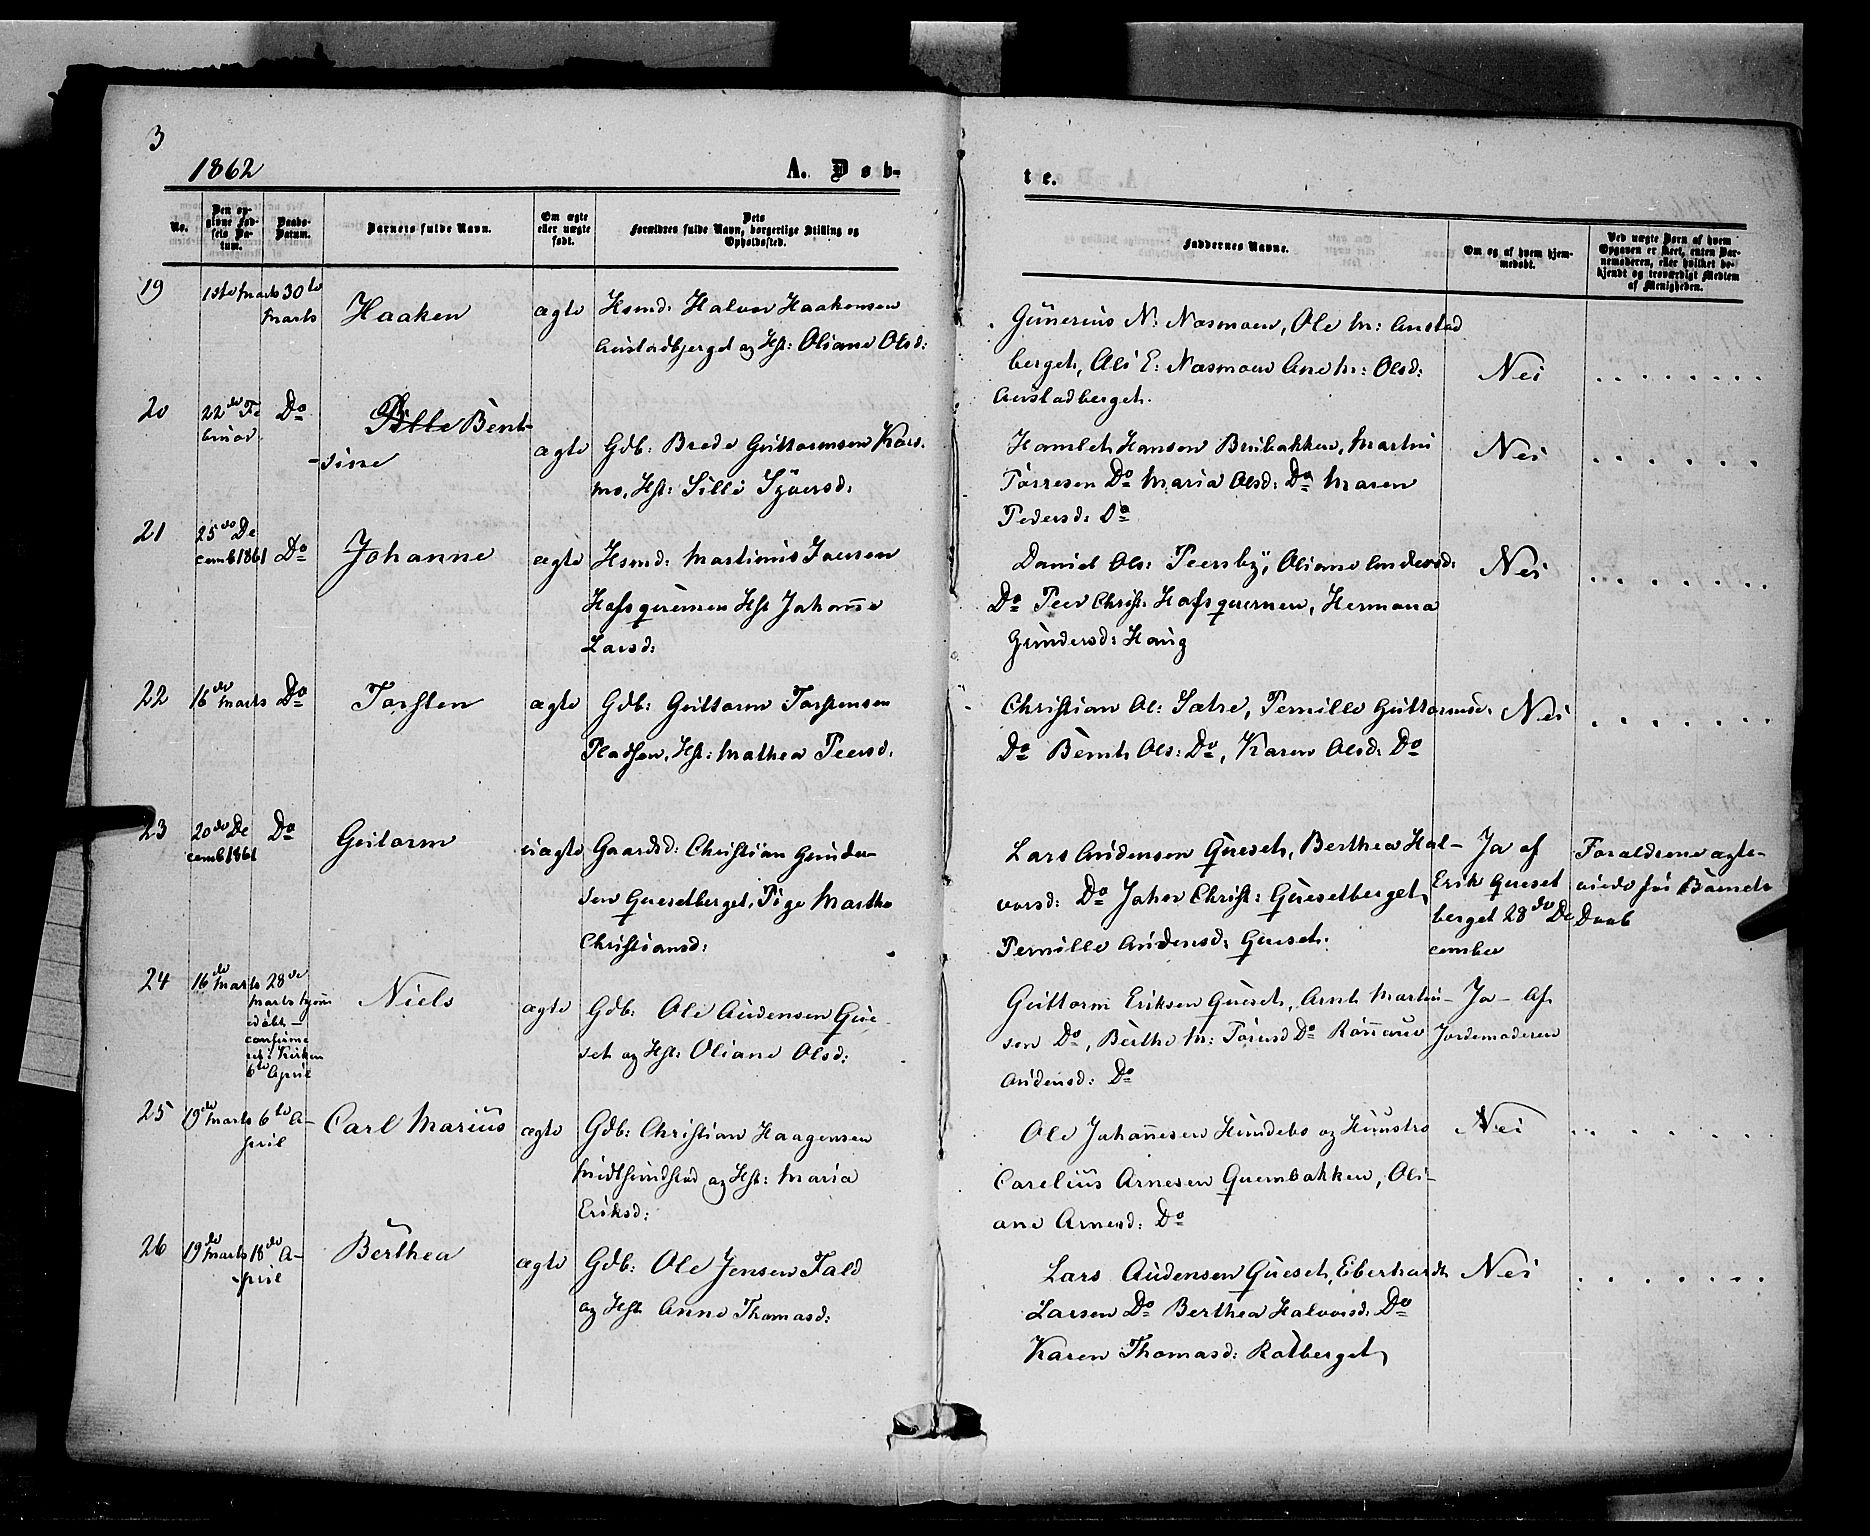 3
1862
A. Døb-
te.
No.
Den op-
givne Fød-
sels Da-
tum.
Daabs-
Datum.
Barnets fulde Navn.
Om ægte
eller uægte
født.
Dets
Forældres fulde Navn, borgerlige Stilling og
Opholdssted.
Faddernes Navne.
Om og af hvem hjem-
medøbt.
Ved uægte Børn af hvem
Opgaven er skeet, enten Bar-
nemoderen, eller hvilket be-
kjendt og troværdigt Medlem
af Menigheden.
19
1ste Marts
30te
Marts
Haaken
ægte
Hsmd: Halvor Haakensen
Austadbjerget og Hst: Oliane Olsd:
Gunerius N: Næsmoen, Ole M: Austad
berget, Ole E: Næsmoen Ane M: Olsd:
Austadberget.
Nei
20
22de Fe
bruar
Do
Pille Bent-
-sine
ægte
Gdb: Brede Guttormsen Kors-
mo, Hst: Silli Syversd:
Hamleth Hansen Brubakken, Martin
Torresen Do Maria Olsd: Do Maren
Pedersd: Do
Nei
21
25de De
cemb 1861
Do
Johanne
ægte
Hsmd: Martinus Iversen
Hofsqvernen Hst Johanne
Larsd:
Daniel Ols: Peersby, Oliane Andersd:
Do Peer Christ: Hofsqvernen, Hermana
Gundersd: Haug
Nei
22
16de Marts
Do
Torsten
ægte
Gdb: Guttorm Torstensen
Pladsen, Hst: Mathea Peersd.
Christian Ol: Sætre, Pernille Guttormsd.
Do Bernt Ols: Do, Karen Olsd: Do
Nei
23
20de De
cemb 1861
Do
Gutorm
uægte
Gaardsd: Christian Gunder-
sen Quesetberget, Pige Marthe
Christiansd:
Lars Audensen Queset, Berthea Hal-
vorsd: Do Johan Christ: Quesetberget,
Pernille Audensd: Queset.
Ja af
Erik Queset
berget 28de De
cember
Forældrene ægte-
viede før Barnets
Daab
24
16de Marts
28de
Marts hjem
edøbt -
confirme
ret i Kirken
6te April
Niels
ægte
Gdb: Ole Audensen Que
set og Hst: Oliane Olsd:
Guttorm Eriksen Queset, Arnt Martin-
sen Do, Berthe M: Toresd Do Rønnaue
Audensd: Do
Ja - af
Jordemoderen
25
19de Marts
6te A-
pril
Carl Marius
ægte
Gdb: Christian Haagensen
Midtsundstad og Hst: Maria
Eriksd:
Ole Johannesen Hundebo og Huustro
Carelius Arnesen Quernbakken, Oli-
ane Arnesd: Do
Nei
26
19de Marts
18de A-
pril
Berthea
ægte
Gdb: Ole Jensen Fald
og Hst Anne Thomasd:
Lars Audensen Queset, Eberhardt
Larsen Do Berthea Halvorsd: Do
Karen Thomasd: Rotberget
Nei